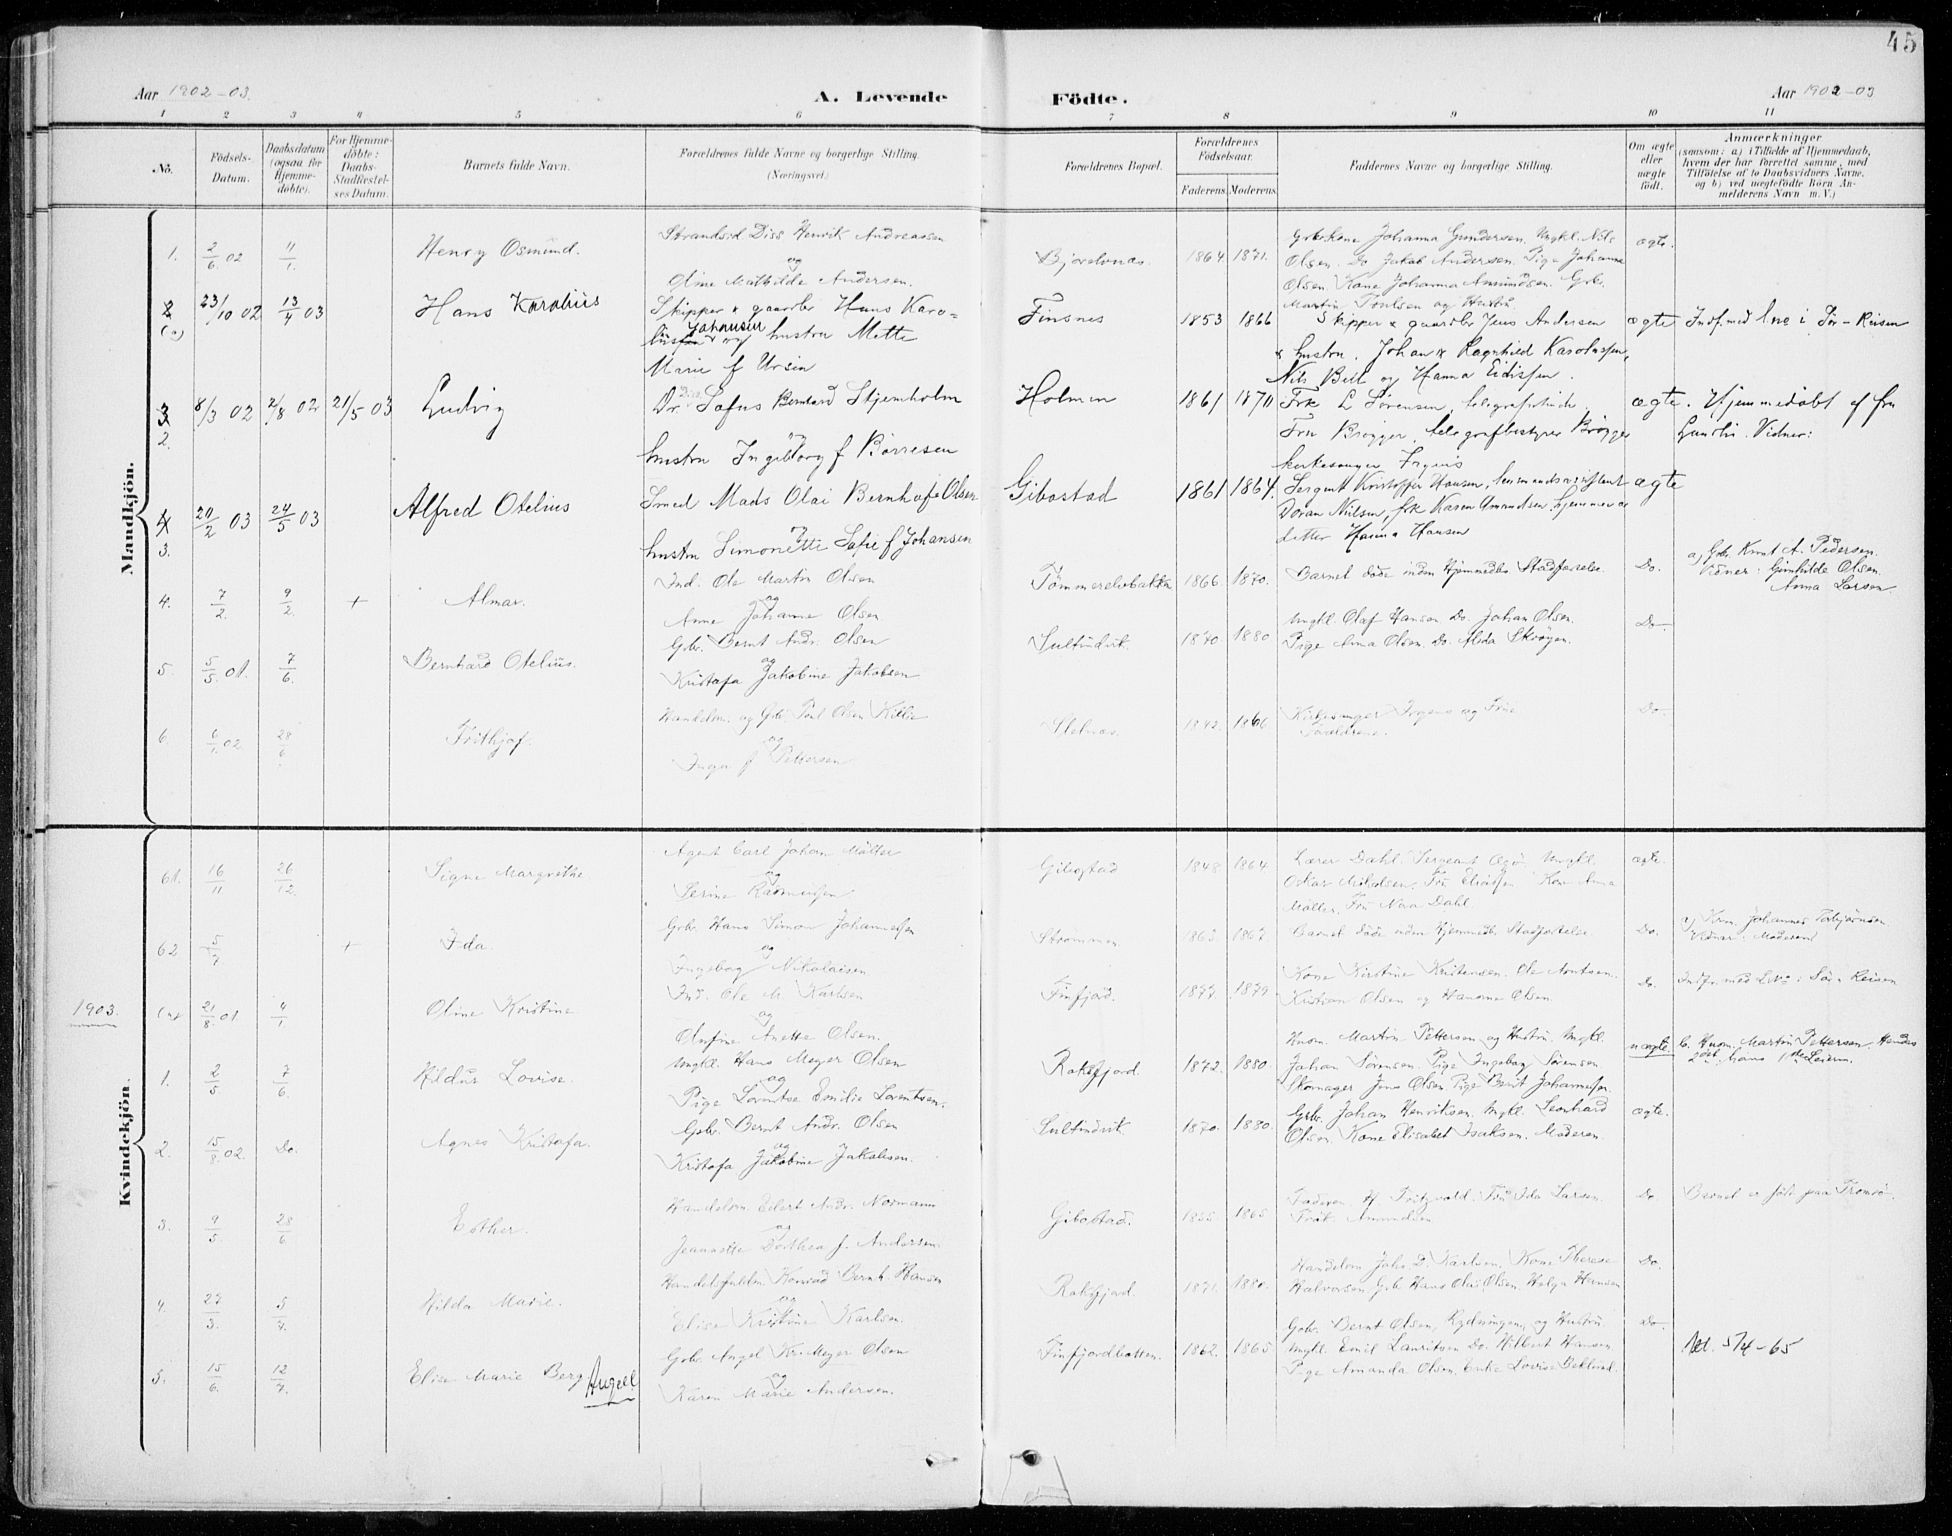 45
Aar 1902-03.
A. Levende Födte.
Aar 1902-03
1 2 3 4 5 6 7 8 9 10 11
No.
Födsels-Datum.
Daabsdatum (ogsaa for Hjemmedöbte).
For Hjemmedöbte: Daabs-Stadfæstelses Datum.
Barnets fulde Navn.
Forældrenes fulde Navne og borgerlige Stilling.
(Næringsvei.)
Forældrenes Bopæl.
Forældrenes Födselsaar.
Faderens. Moderens.
Faddernes Navne og borgerlige Stilling.
Om ægte eller uægte födt.
Anmærkninger
(saasom: a) i Tilfælde af Hjemmedaab,
hvem der har forrettet samme, med
Tilföielse af to Daabsvidners Navne,
og b) ved uægtefödte Börn An-
melderens Navn m. V.)
Mandkjön.
1. 2/6 02 11/1. Henry Osmund. Henrik Andreassen
og
Mathilde Andersen.
1864 1871.
Johanna Gundersen. Ungkl. Nils
Olsen. Do Jakob Andersen. Pige Johanna
Olsen. Kone Johanna Amundsen. Gbr.
Martin Poulsen og Hustru
ægte.
2 (a) 23/10 02 13/4 03 Hans Karolius
Skipper & gaardbr Hans Karo-
Johansen og hustru Mette
Marie f Ursin
Finsnes 1853 1866
Skipper & gaardbr Jens Andersen
& hustru. Johan & Ragnhild
Nils Bell og Hanna Eidissen.
ægte Indf. med i Sör-Reisen
3 2. 8/3 02 2/8 02 21/5 03 Ludvig
Dr Sofus Bernhard Stjernholm
og
hustru Ingeborg f Börresen
Holmen 1861 1870
Frk L Sörensen,
Fru Brögger, telegrafbestyrer Brögger
kirkesanger
ægte. Hjemmedöbt af fru
Vidner:
4 3. 20/2 03 24/5 03 Alfred Otelius
Smed Mads Olai Bernhofe Olsen
og
hustru Simonette Sofie f Johansen
Gibostad 1861 1864.
Sergent Kristoffer Hansen,
Doran Nielsen, frk Karen Amundsen, hjemmeda
datter Hanna Hansen
ægte
4. 7/2. 9/2. + Almar.
Ind. Ole Martin Olsen
og
Anne Johanne Olsen
Tömmerelvbakken 1866 1870.
Barnet döde inden Hjemmedbs Stadfæstelse
Do. a) Gbr. Knut A. Pedersen.
Vidner: Gunhilde Olsen
Anna Larsen.
5. 5/5 01. 7/6. Bernhard Otelius.
Gbr. Bernt Andr. Olsen
og
Kristofa Jakobine Jakobsen
Sultindvik. 1870 1880
Ungkl. Olaf Hansen Do. Johan Olsen.
Pige Anna Olsen. Do. Alida Skrögen.
Do
6. 6/1. 02 28/6. Frithjof.
og Gbr. Poul Olsen Killie
og
Inger f Pettersen
1842. 1866
Kirkesanger og Frue
Forældrene.
Do
Kvindekjön.
61. 16/11 26/12. Signe Margrethe.
Agent Carl Johan Möller
og
Serine Rasmussen
Gibostad 1848 1864.
Lærer Dahl. Sergeant Ungkl.
Oskar Mikalsen. Fru Kone Anna
Möller. Fru Nora Dahl.
ægte.
62 5/7 + Ida.
Gbr. Hans Simon Johannessen
og
Ingeborg Nikolaisen
Strömmen 1863. 1867.
Barnet döde inden Hjemmedb. Stadfæstelse
Do. a) Johannes Torbjörnsen
Vidner: Moderen
1903.
21/8. 01 4/1 Oline Kristine
Ind. Ole M. Karlsen
og
Olufine Anette Olsen.
Finfjord. 1877. 1879
Kone Kirstine Kristensen. Ole Arntsen.
Kristian Olsen og Hansine Olsen.
Do. Indf. med i Sör-Reisen
1. 2/5 7/6. Hildur Lovise.
Ungkl. Hans Meyer Olsen
og
Pige Lorentse Emilie Lorentsen.
Rakfjord. 1872. 1880.
Martin Pettersen og Hustru Ungkl.
Johan Sörensen. Pige Ingeborg Sörensen
Skomager Jens Olsen. Pige Berit Johannessen.
uægte. b. Martin Pettersen. Hendes
2det, hans 1ste Leierm.
2. 15/8. 02. Do. Agnes Kristofa.
Gbr. Bernt Andr. Olsen
og
Kristofa Jakobine Jakobsen.
Sultindvik. 1870. 1880.
Gbr. Johan Henriksen. Ungkl. Leonhard
Olsen. Kone Elisabet Isaksen. Moderen.
ægte.
3. 9/5 28/6 Esther.
Handelsm. Edert Andr. Normann
og
Jeannette Dorthea f. Andersen.
Gibostad. 1855 1865
Faderen H. Fritzvold. Fru Ida Larsen.
Frök. Amundsen
Do Barnet er födt paa Tromsö.
4. 27/3. 5/7. Hilda Marie.
Konrad Bernh. Hansen
og
Elise Kristine Karlsen.
Rakfjord. 1871. 1880.
Handelsm Johs D. Karlsen. Kone Therese
Halvorsen. Gbr. Hans Olai Olsen. Helga Hansen
Do.
5. 15/6. 12/7. Elise Marie Berg Angell
Gbr. Angel Kr. Meyer Olsen
og
Karen Marie Andersen.
Finfjordbotten. 1862. 1865
Gbr. Bernt Olsen, Rydningen, og Hustru
Ungkl. Emil Lauritsen Do. Hilbert Hansen
Pige Amanda Olsen. Enke Lovise
Do 5/4-65